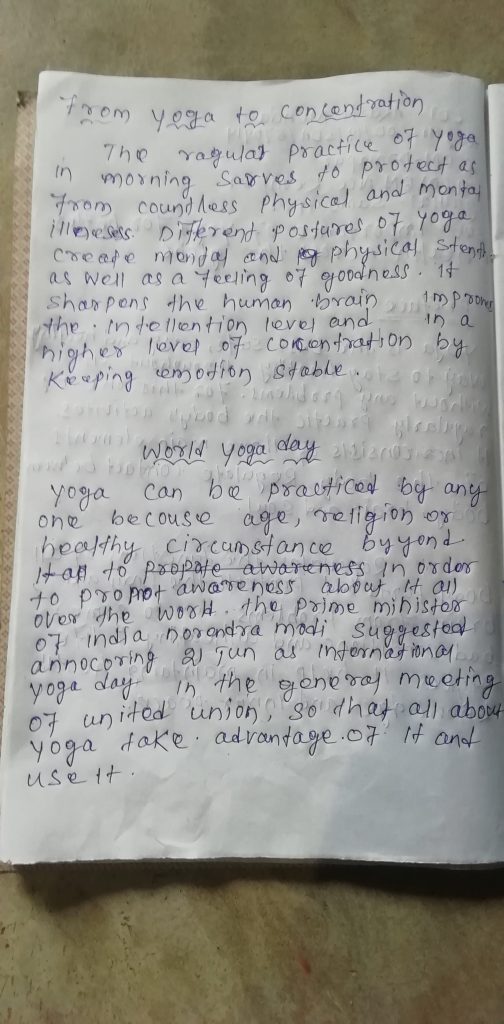 From yoga to concentration
The ragular practice of yoga
in morning sarves to protect as
from countless physical and mental
illnesses Different postures of yoga
create mental and physical stenth
as well as a feeling of goodness. It
sharpens the human brain improves
the intellention level and in a
higher level of concentration by
Keeping emotion stable.
World yoga day
yoga can be practiced by any
one becouse age, religion or
healthy circumstance byyond
It all to propote awareness in order
to promot awareness about it all
over the world. the prime minister
of india norendra modi suggested
annocoring 21 Jun as international
yoga day in the general meeting
of united union, so that all about
yoga take advantage of it and
use it.